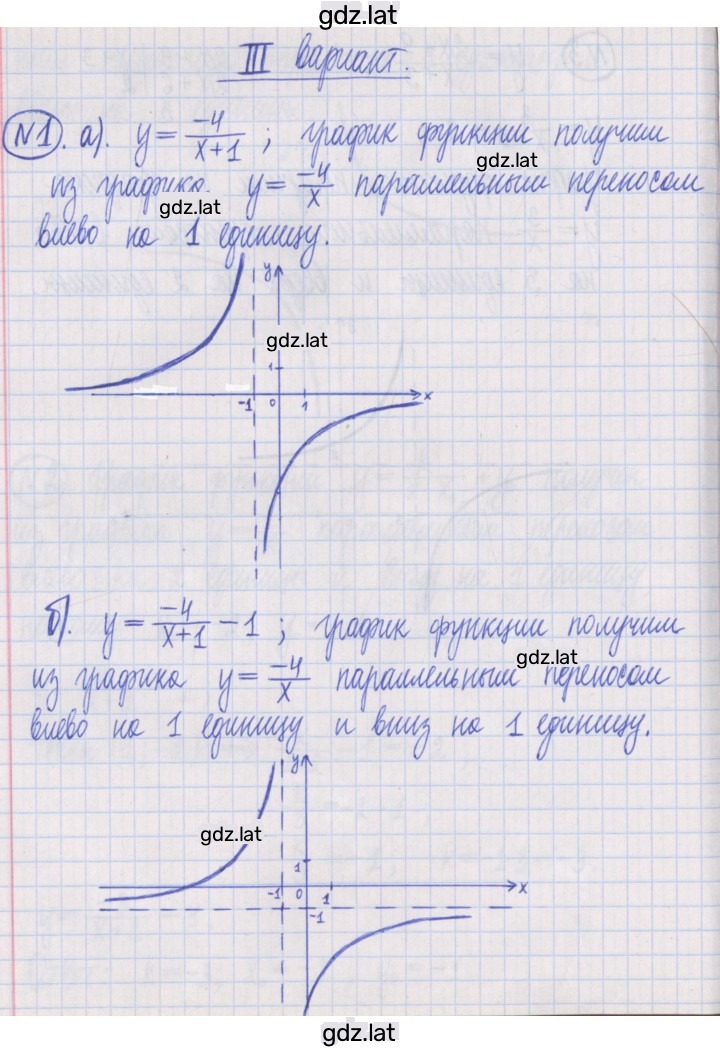 gdz.lat
III вариант.
N1. а). y = -4/(x+1) ; график функции получим
gdz.lat
из графика y = -4/x параллельным переносом
gdz.lat
влево на 1 единицу.
y
gdz.lat
1
-1 0 1 x
б). y = -4/(x+1) - 1 ; график функции получим
gdz.lat
из графика y = -4/x параллельным переносом
влево на 1 единицу и вниз на 1 единицу.
y
gdz.lat
1
-1 0 1 x
-1
gdz.lat